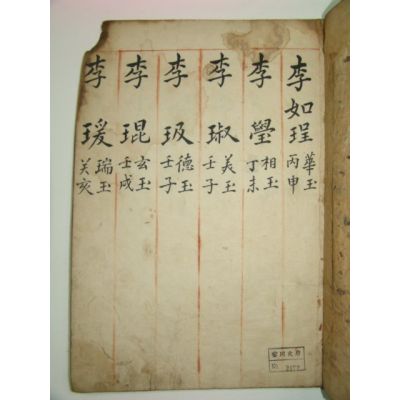 李如珵 華玉 丙申
李瑩 相玉 丁未
李琡 美玉 壬子
李 德玉 壬子
李琨 玄玉 壬戌
李瑗 瑞玉 癸亥